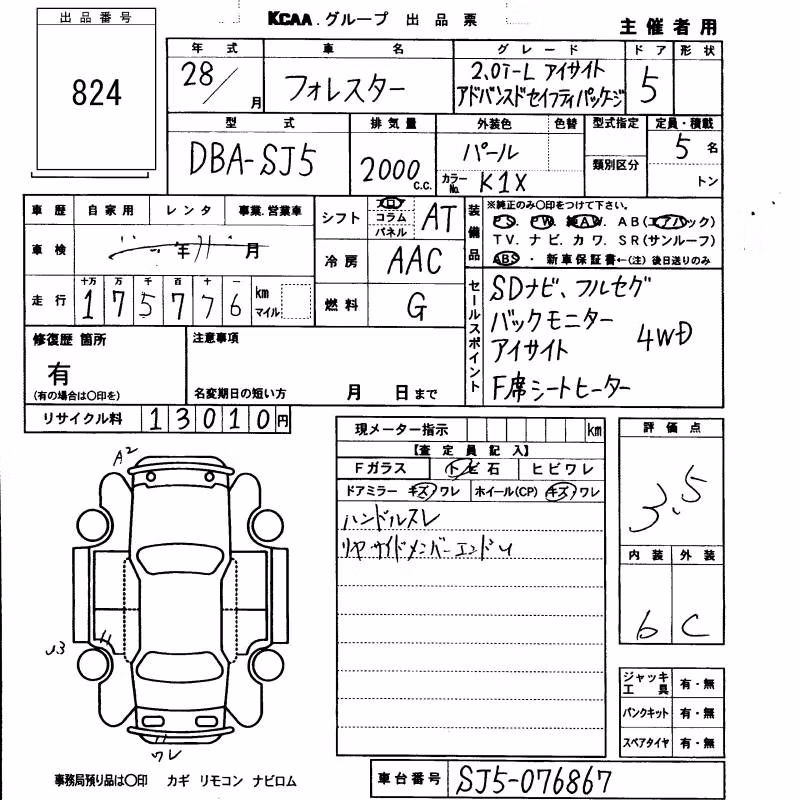 出品番号
824
KCAA.グループ 出品票
主催者用
年式 車名 グレード ドア 形状
28/月 フォレスター 2.0i-L アイサイト アドバンスドセイフティパッケージ 5
型式 排気量 外装色 色替 型式指定 定員・積載
DBA-SJ5 2000c.c. パール 類別区分 5名
カラーNo. K1X トン
車歴 自家用 レンタ 事業.営業車
シフト フロ コラム パネル AT
装備品 ※純正のみ○印をつけて下さい。
PS. PW. 純AW. AB(エアバック)
TV. ナビ. カワ. SR(サンルーフ)
ABS ・ 新車保証書←(注) 後日送りのみ
車検 年 月
冷房 AAC
走行 十万 万 千 百 十 一
175776 km マイル
燃料 G
セールスポイント
SDナビ、フルセグ
バックモニター
アイサイト 4WD
F席シートヒーター
修復歴 箇所
有
(有の場合は○印を)
注意事項
名変期日の短い方 月 日まで
リサイクル料 13010円
現メーター指示 km
【査定員記入】
Fガラス トビ石 ヒビワレ
ドアミラー キズ/ワレ ホイール(CP) キズ/ワレ
ハンドルスレ
リヤサイドメンバーエンドU
評価点
3.5
内装 外装
6 C
A2
U3
ワレ
ジャッキ工具 有・無
パンクキット 有・無
スペアタイヤ 有・無
事務局預り品は○印 カギ リモコン ナビロム
車台番号 SJ5-076867